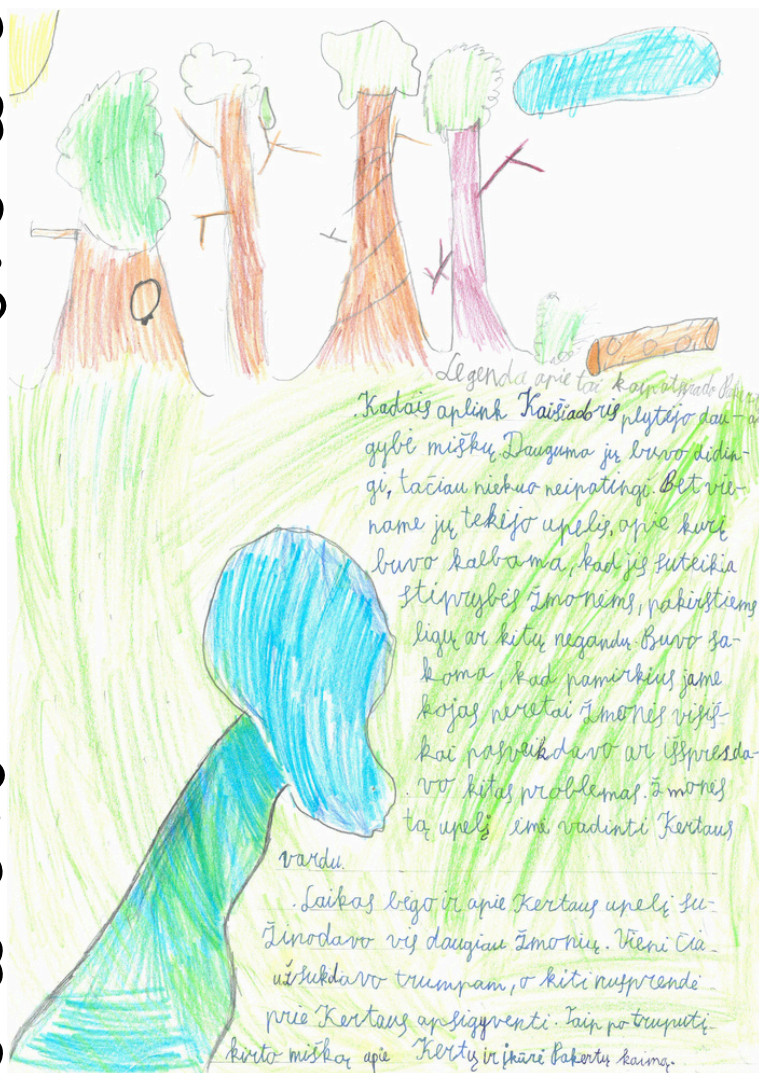 Legenda apie tai kaip atsirado
Kadais aplink Kaišiadoris plytėjo dau-
gybė miškų. Dauguma jų buvo didin-
gi, tačiau niekuo neipatingi. Bet vie-
name jų tekėjo upelis, apie kurį
buvo kalbama, kad jis suteikia
stiprybės žmonėms, pakirstiems
ligų ar kitų negandų. Buvo sa-
koma, kad pamirkius jame
kojas neretai žmonės visiš-
kai pasveikdavo ar išspręsda-
vo kitas problemas. Žmonės
tą upelį ėmė vadinti Kertaus
vardu.
Laikas bėgo ir apie Kertaus upelį su-
žinodavo vis daugiau žmonių. Vieni čia
užsukdavo trumpam, o kiti nusprendė
prie Kertaus apsigyventi. Taip po truputį
kirto mišką apie Kertų ir įkūrė Pakertų kaimą.